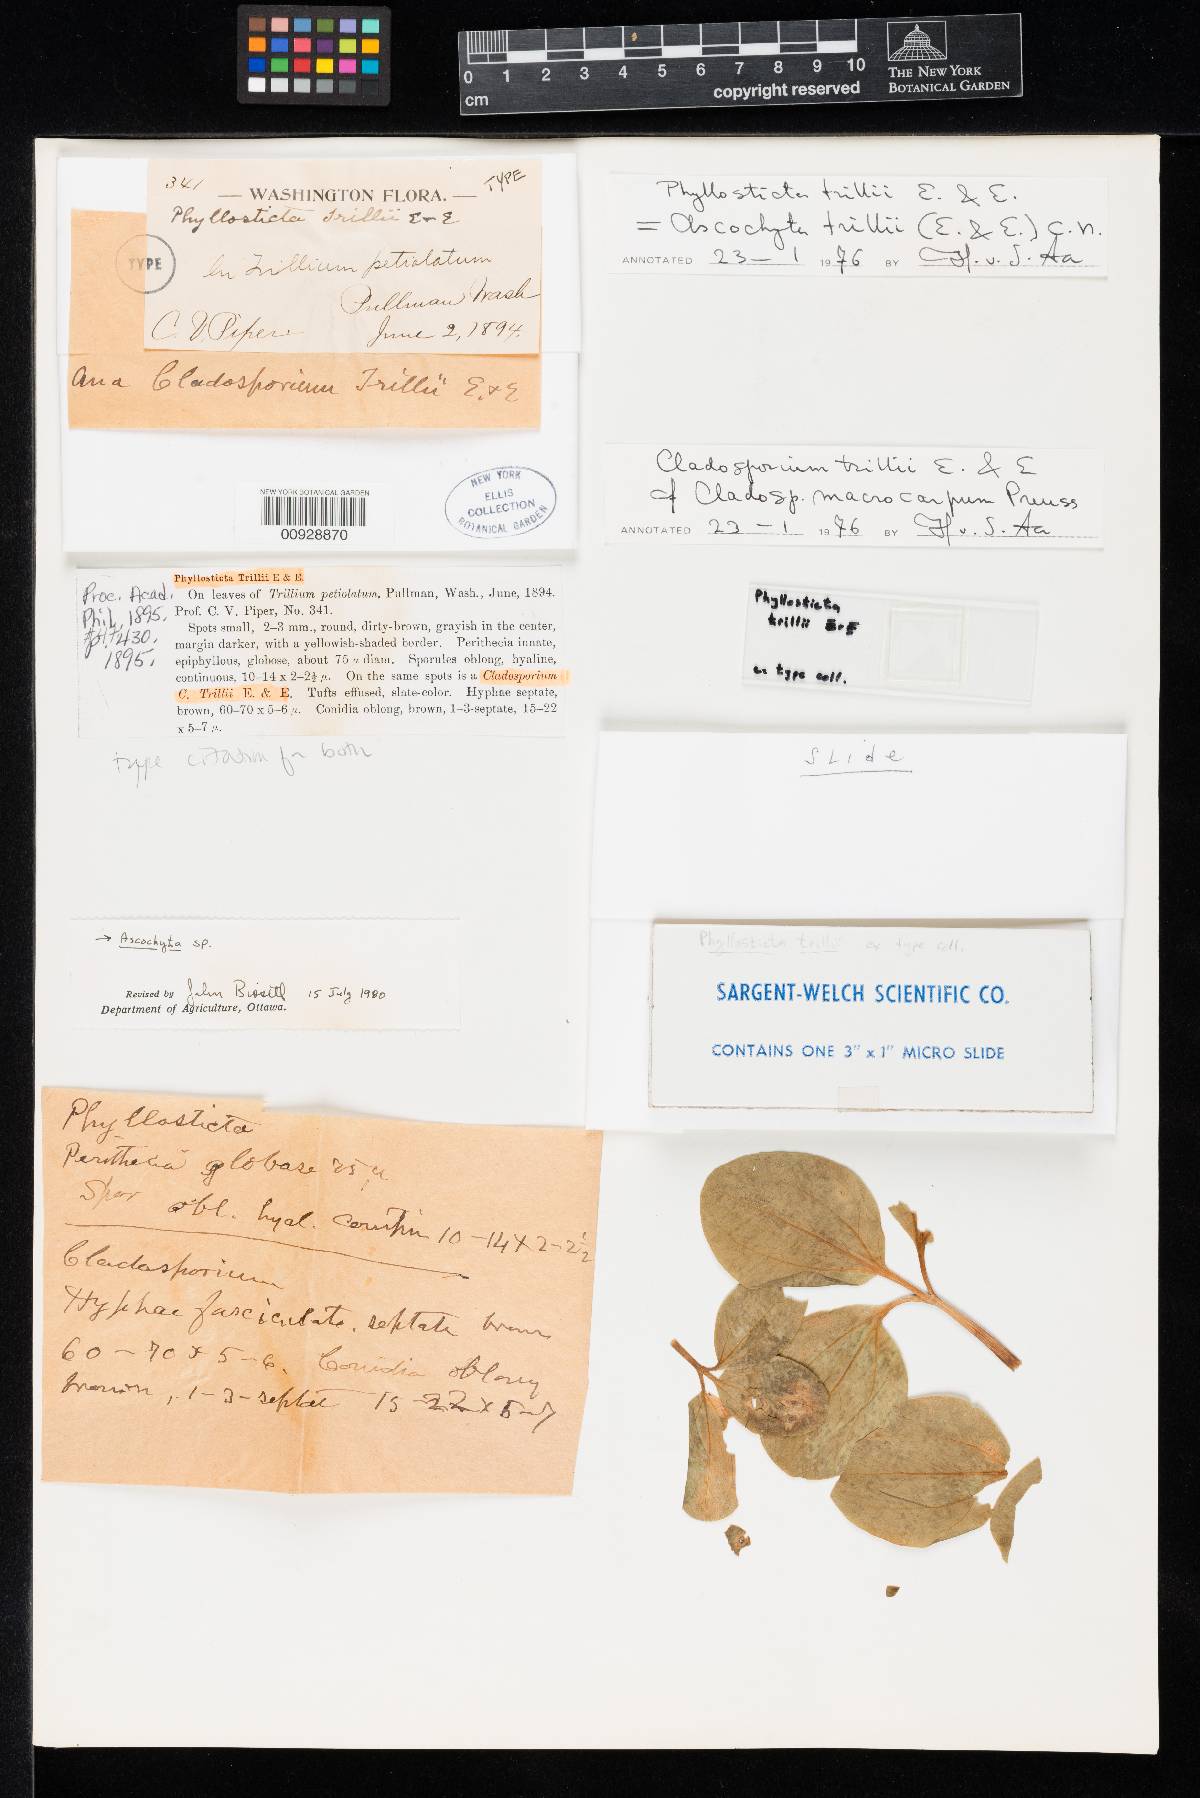 0 1 2 3 4 5 6 7 8 9 10
cm
copyright reserved
THE NEW YORK
BOTANICAL GARDEN
341
TYPE
— WASHINGTON FLORA. —
Phyllosticta Trillii E & E
TYPE
On Trillium petiolatum
Pullman, Wash
C. V. Piper.
June 2, 1894.
and Cladosporium Trillii E. & E
NEW YORK BOTANICAL GARDEN
00928870
NEW YORK
ELLIS
COLLECTION
BOTANICAL GARDEN
Proc. Acad.
Phil. 1895.
430.
1895.
Phyllosticta Trillii E & E.
On leaves of Trillium petiolatum, Pullman, Wash., June, 1894.
Prof. C. V. Piper, No. 341.
Spots small, 2–3 mm., round, dirty-brown, grayish in the center,
margin darker, with a yellowish-shaded border. Perithecia innate,
epiphyllous, globose, about 75 µ diam. Sporules oblong, hyaline,
continuous, 10–14 x 2–2½ µ. On the same spots is a Cladosporium
C. Trillii E. & E. Tufts effused, slate-color. Hyphae septate,
brown, 60–70 x 5–6 µ. Conidia oblong, brown, 1–3-septate, 15–22
x 5–7 µ.
type citation for both
→ Ascochyta sp.
Revised by John Bissett 15 July 1980
Department of Agriculture, Ottawa.
Phyllosticta
Perithecia globose 75 µ
Spor obl. hyal. contin 10–14 x 2–2½
Cladosporium
Hyphae fasciculate, septate brown
60–70 x 5–6. Conidia oblong
brown, 1–3-septate 15–22 x 5–7
Phyllosticta trillii E. & E.
= Ascochyta trillii (E. & E.) c.n.
ANNOTATED 23–1 1976 BY H. v. d. Aa
Cladosporium trillii E. & E
cf Cladosp. macrocarpum Preuss
ANNOTATED 23–1 1976 BY H. v. d. Aa
Phyllosticta
trillii E&E
ex type coll.
SLide
Phyllosticta trillii ex type coll.
SARGENT-WELCH SCIENTIFIC CO.
CONTAINS ONE 3" x 1" MICRO SLIDE